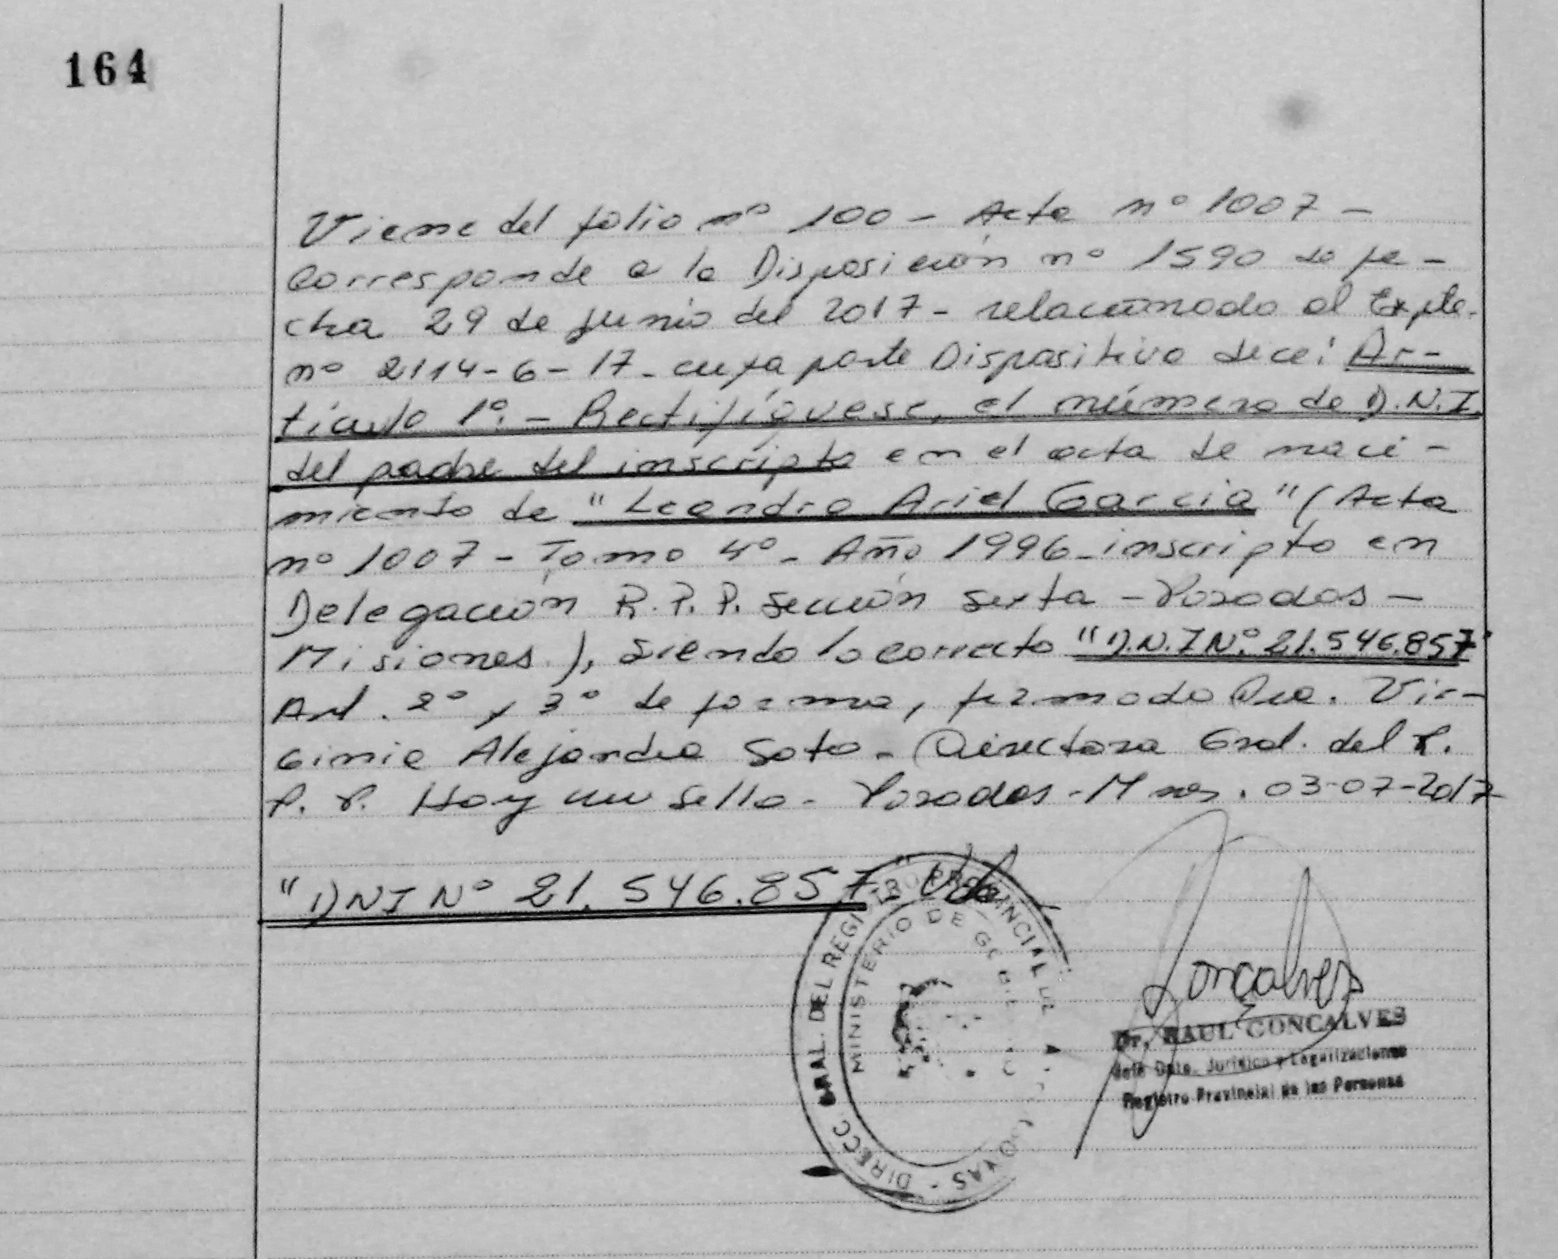 164
Viene del folio nº 100 - Acta nº 1007 -
Corresponde a la Disposición nº 1590 de fe-
cha 29 de Junio del 2017 - relacionado al Expte.
nº 2114-6-17 - cuya parte Dispositiva dice: Ar-
tículo 1º. - Rectifíquese, el número de D.N.I.
del padre del inscripto en el acta de naci-
miento de "Leandro Ariel Garcia" (Acta
nº 1007 - Tomo 4º - Año 1996 - inscripto en
Delegación R.P.P. Sección Sexta - Posadas -
Misiones), siendo lo correcto "D.N.I Nº. 21.546.857"
Art. 2º y 3º de forma, firmado Dra. Vir-
ginia Alejandra Soto - Directora Gral. del R.
P. P. Hay un sello - Posadas - Mnes. 03-07-2017
"DNI Nº 21.546.857"
DIRECC. GRAL. DEL REGISTRO PROVINCIAL DE
MINISTERIO DE GOBIERNO
Goncalves
Dr. RAUL GONCALVES
Jefe Dpto. Jurídico y Legalizaciones
Registro Provincial de las Personas